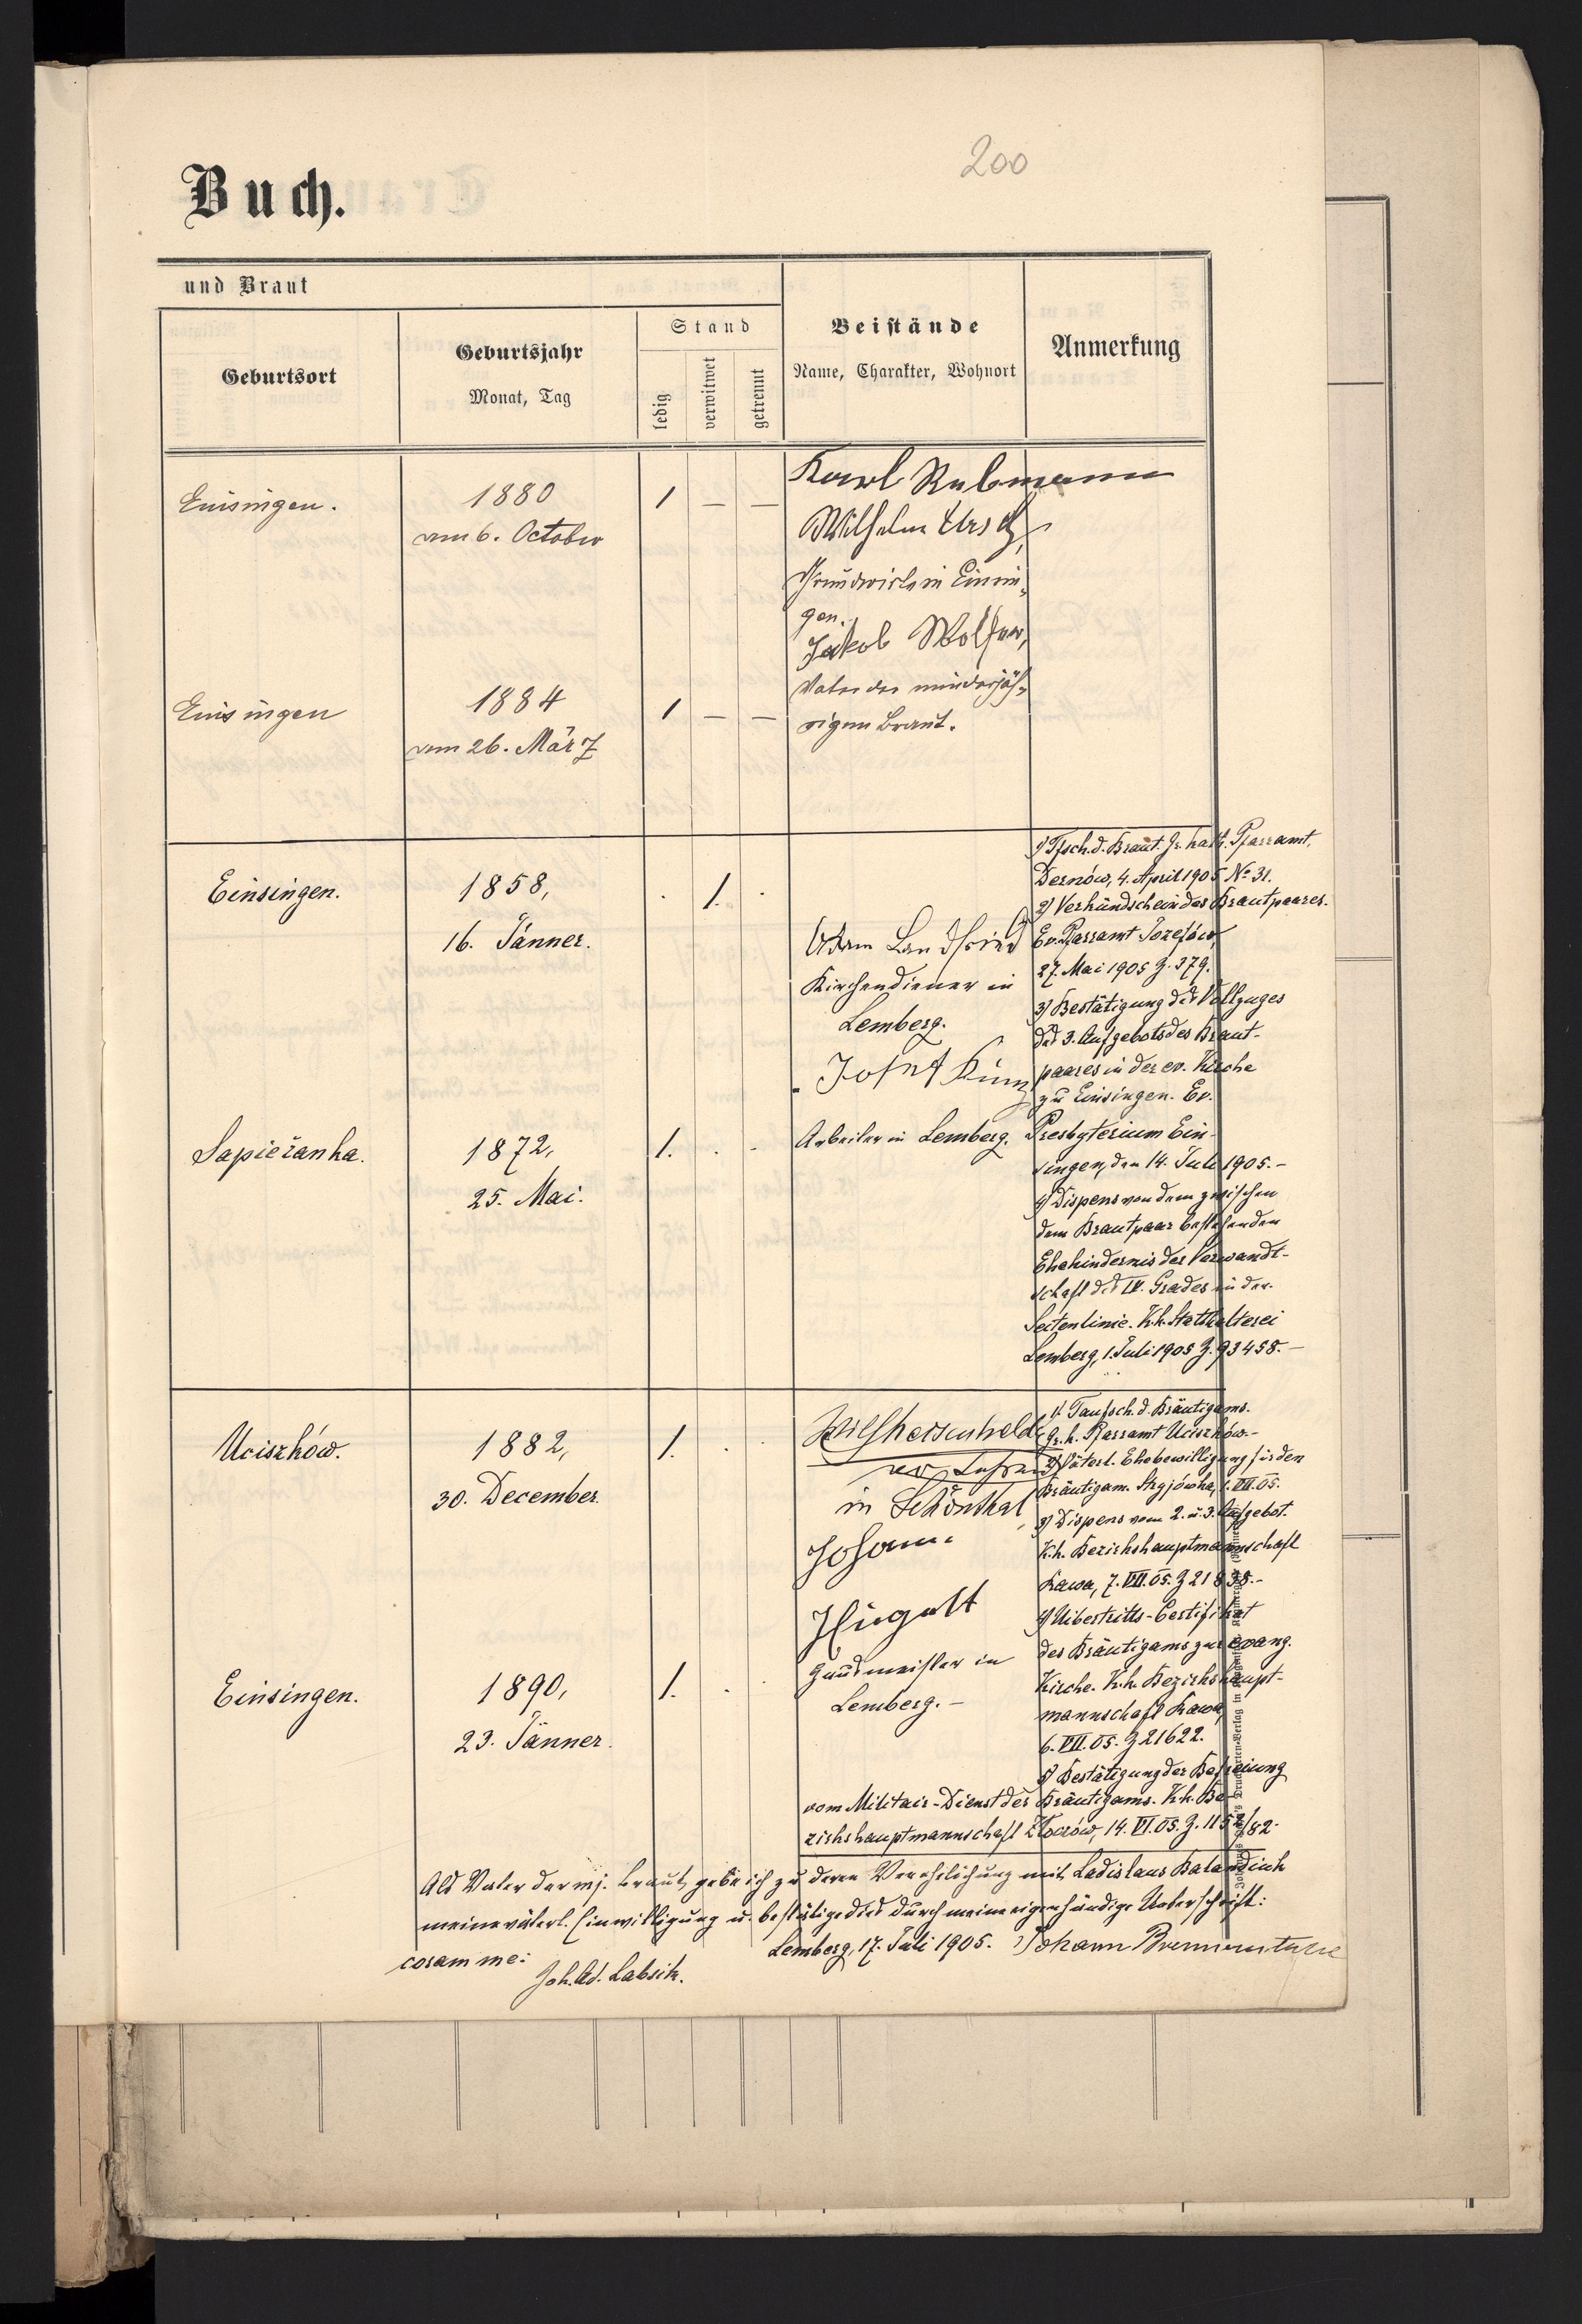 200
Buch.
und Braut
Geburtsort
Geburtsjahr
Monat, Tag
Stand
ledig
verwitwet
getrennt
Beistände
Name, Charakter, Wohnort
Anmerkung
Einsingen.
1880
am 6. October
1 — —
Karl
Wilhelm
Grundwirte in Einsin-
gen.
Jakob Wolfer,
Vater der minderjäh-
rigen Braut.
Einsingen
1884
am 26. März
1 — —
Einsingen.
1858,
16. Jänner.
. 1. .
Adam Landfried
Kirchendiener in
Lemberg.
Josef
Arbeiter in Lemberg.
Sapieżanka.
1872,
25. Mai.
1. . .
1) Tfsch. d. Braut. Gr. kath. Pfarramt,
Dernów, 4. April 1905 No 31.
2) Verkündschein des Brautpaares.
Ev. Pfarramt Józefów,
27. Mai 1905 Z. 379.
3) Bestätigung des Vollzuges
des 3. Aufgebots des Braut-
paares in der ev. Kirche
zu Einsingen. Ev.
Presbyterium Ein-
singen, den 14. Juli 1905. –
4) Dispens von dem zwischen
dem Brautpaar bestehenden
Ehehindernis der Verwandt-
schaft des IV. Grades in der
Seitenlinie. K.k. Statthalterei
Lemberg, 1. Juli 1905 Z. 93458. –
Uciszków.
1882,
30. December.
1. . .
in Schönthal
Johann
Hausmeister in
Lemberg. –
Einsingen.
1890,
23. Jänner.
1. . .
1) Taufsch. d. Bräutigams.
Gr. k. Pfarramt Uciszków. –
2) Väterl. Ehebewilligung für den
Bräutigam. VII. 05.
3) Dispens vom 2. u. 3. Aufgebot.
K.k. Bezirkshauptmannschaft
Rawa, 7. VII. 05. Z 21838. –
4) Uibertritts-Certifikat
des Bräutigams zur evang.
Kirche. K.k. Bezirkshaupt-
mannschaft Rawa,
6. VII. 05. Z 21622.
5) Bestätigung der Befreiung
vom Militair-Dienst des Bräutigams. K.k. Be-
zirkshauptmannschaft Złoczów, 14. VI. 05. Z. 1152/82.
Als Vater der mj. Braut gebe ich zu deren Verehelichung mit Ladislaus Balandiuk
meine väterl. Einwilligung u. bestätige dies durch meine eigenhändige Unterschrift:
Lemberg, 17. Juli 1905. Johann
coram me:
Joh. Ad. Labsik.